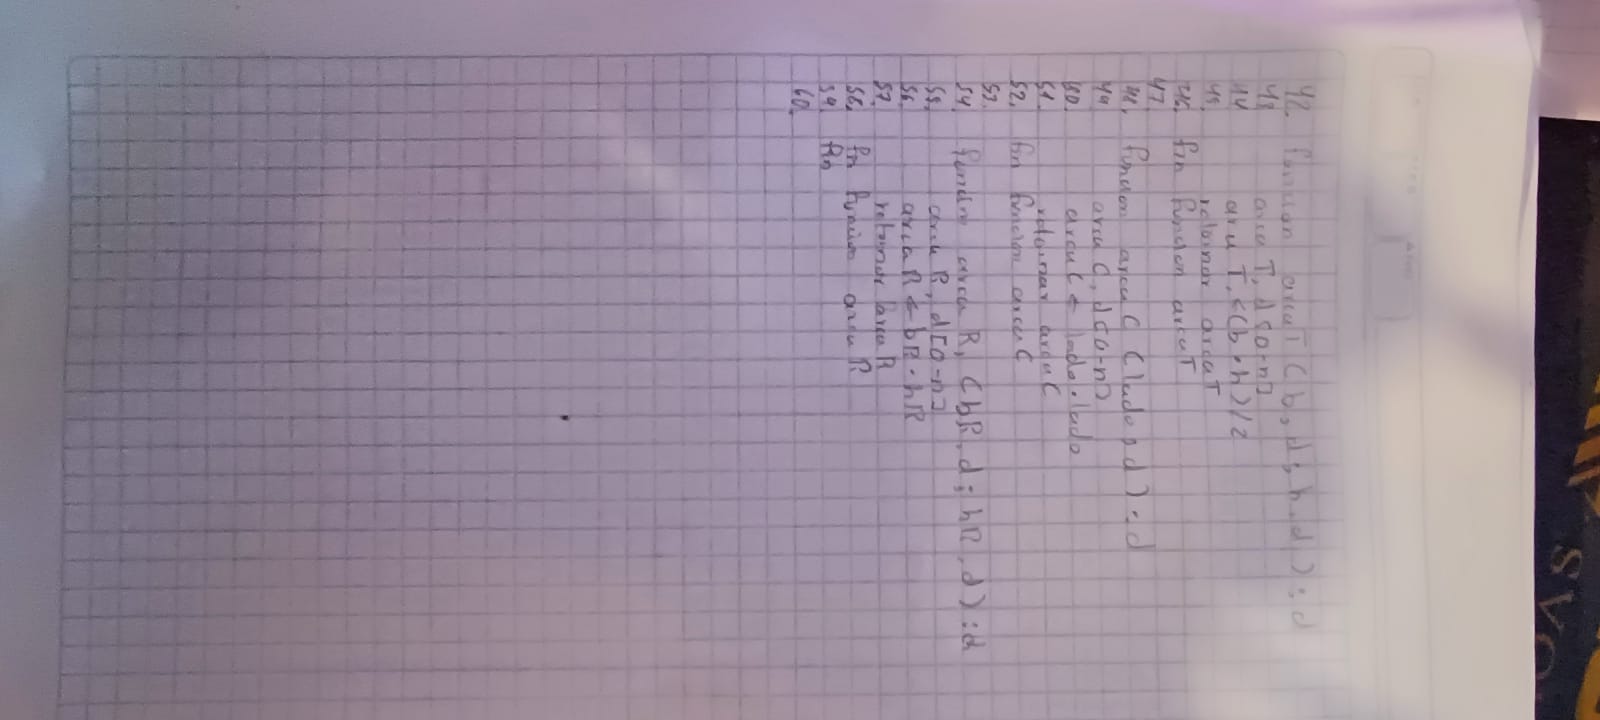 42. funcion areaT (b, d; h, d) : d
43 areaT, d [0-n]
44 areaT, <(b*h)/2
45. retornar areaT
46. fin funcion areaT
47
48. funcion areaC (lado, d) : d
49 areaC, d [0-n]
50. areaC ← lado*lado
51 retornar areaC
52. fin funcion areaC
53
54. función area R, (bR, d; hR, d) : d
55. area R, d[0-n]
56 areaR ← bR * hR
57. retornar area R
58. fin función area R
59. fin
60.
SVO